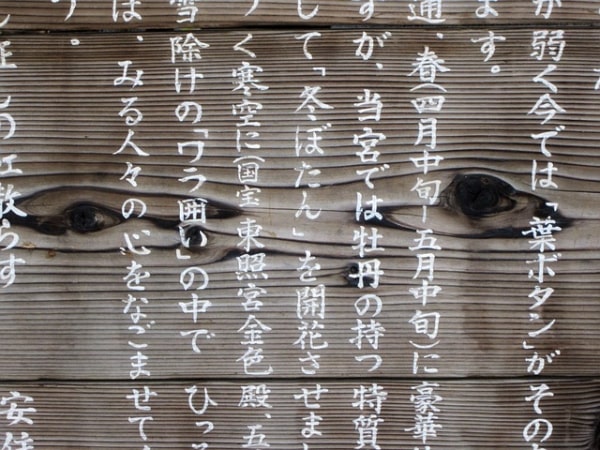 弱く今では「葉ボタン」がその
ます。
通、春(四月中旬ー五月中旬)に豪華
すが、当宮では牡丹の持つ特質
して「冬ぼたん」を開花させまし
く寒空に(国宝東照宮金色殿、五
雪除けの「ワラ囲い」の中でひっそ
ば、みる人々の心をなごませて
う。
しの紅散らす 安住